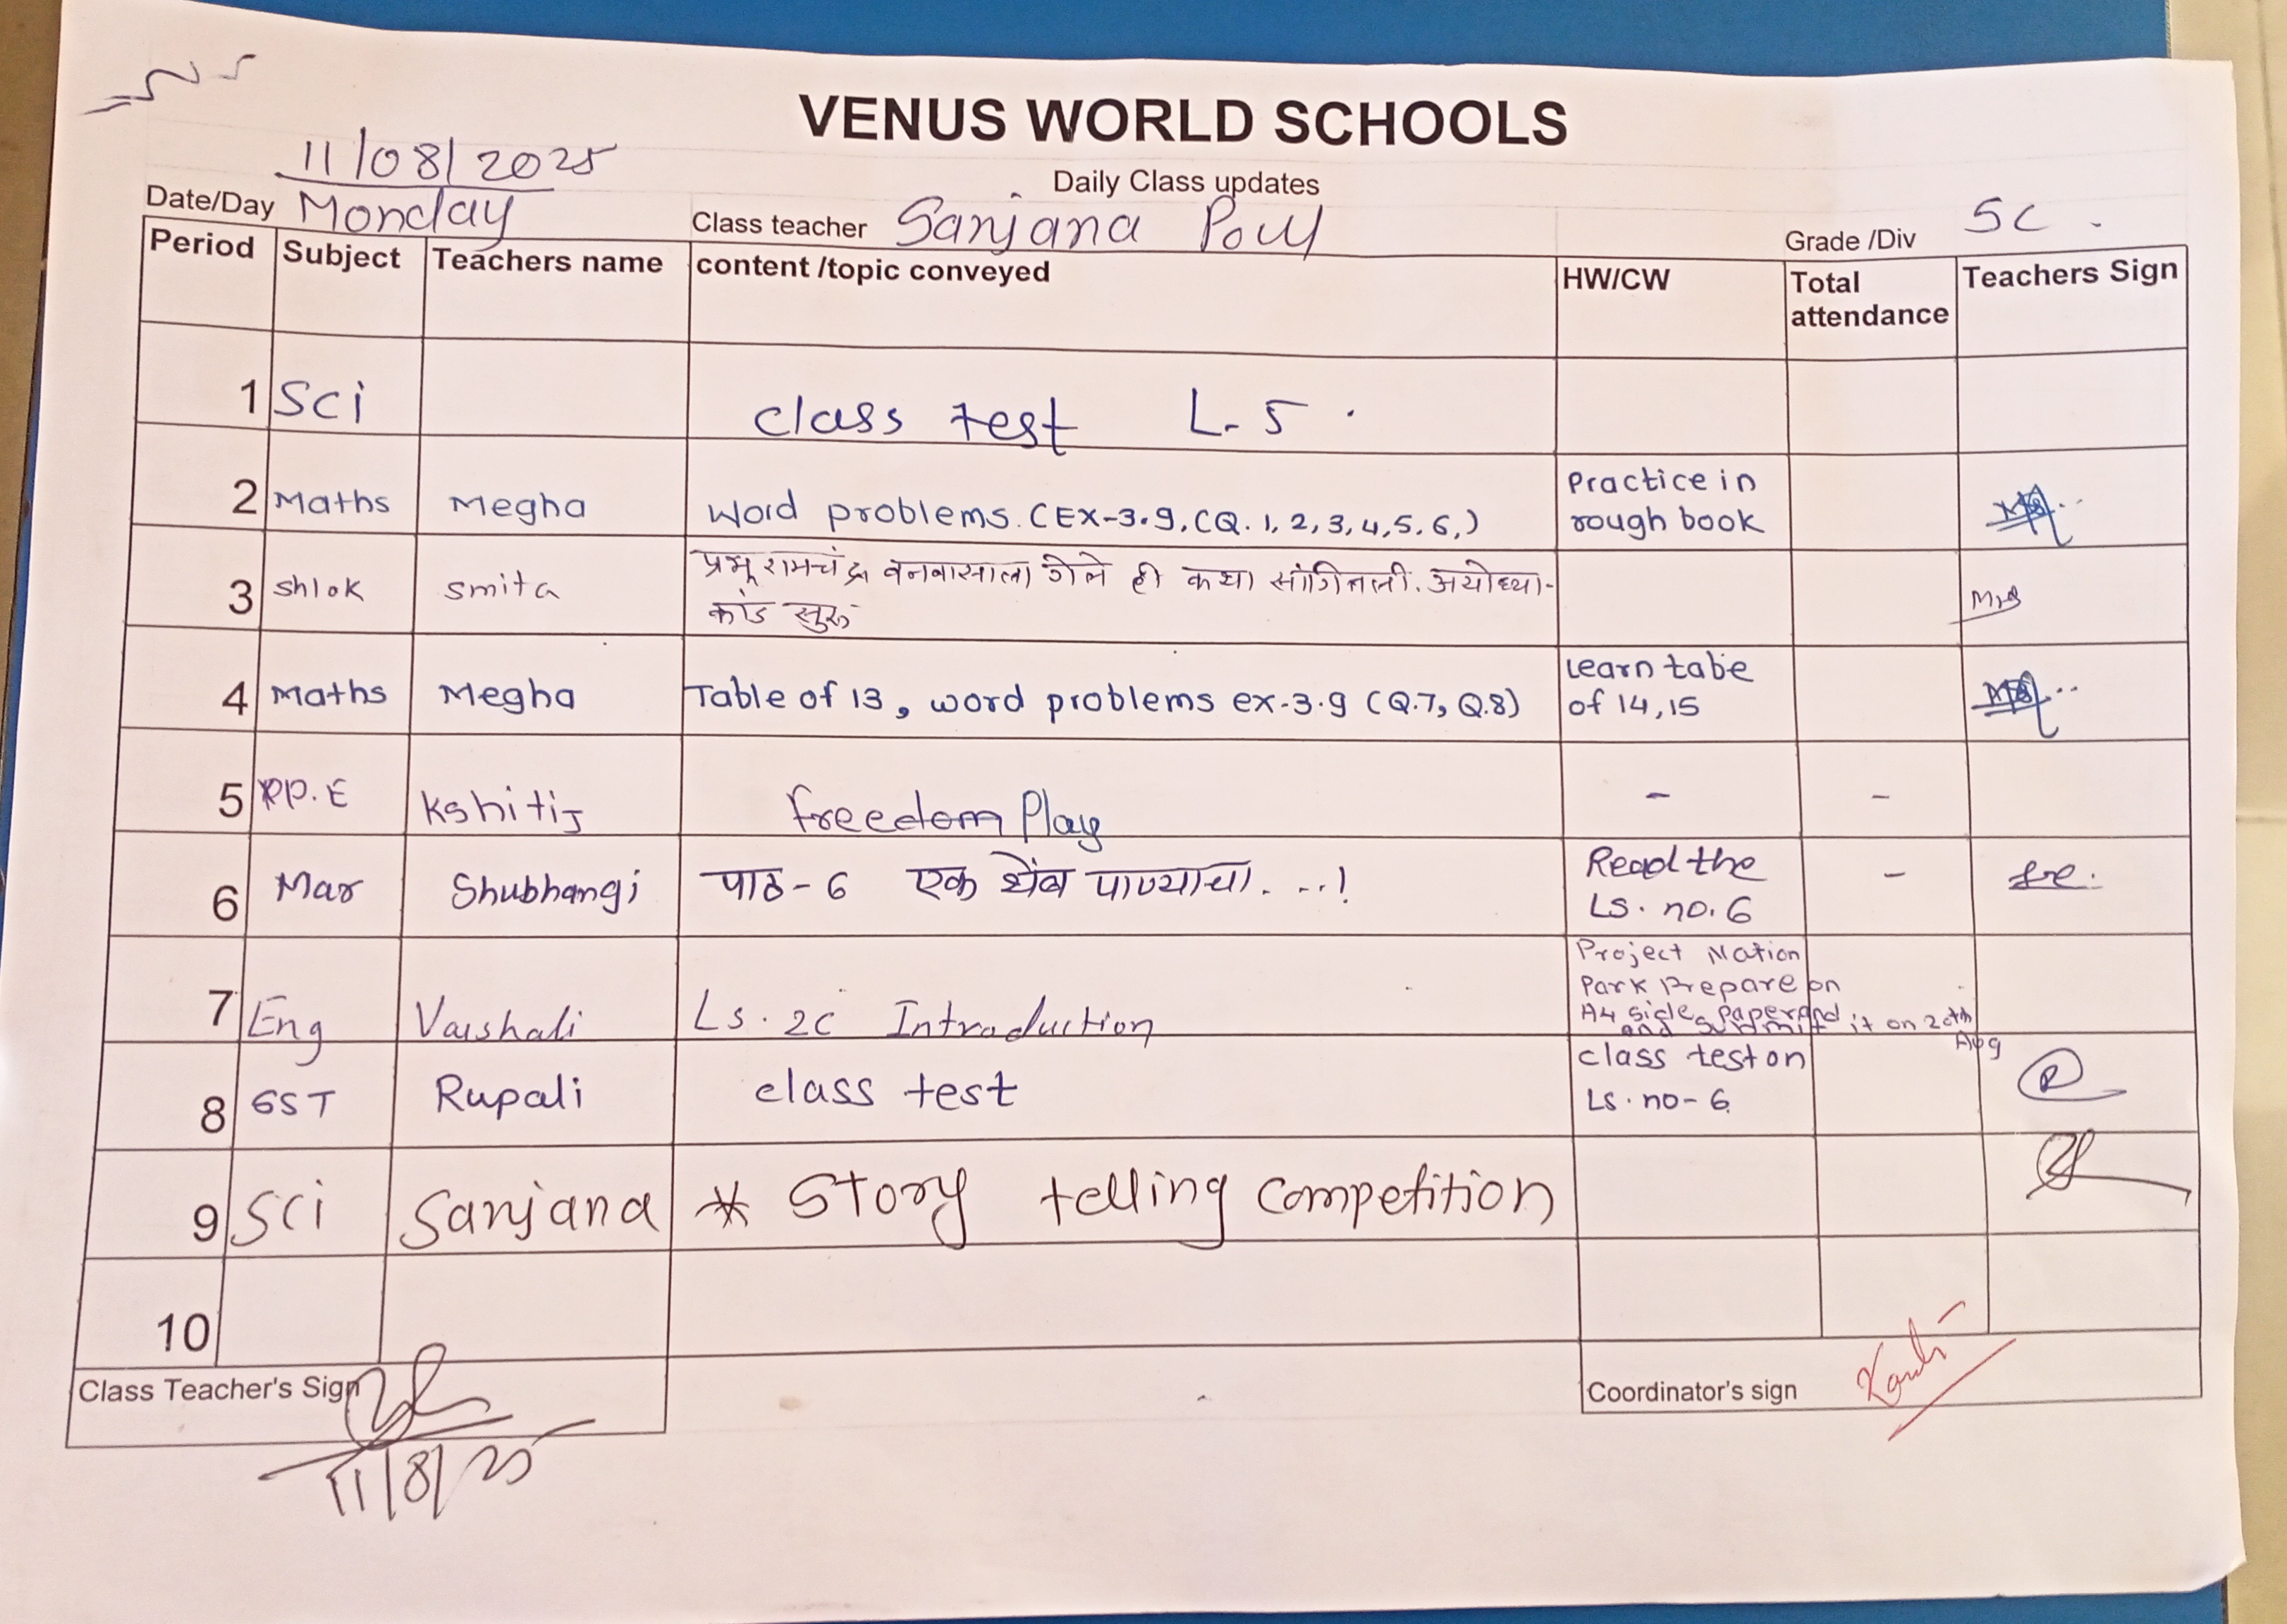 VENUS WORLD SCHOOLS
Daily Class updates
11/08/2025
Date/Day Monday Class teacher Sanjana Poul Grade /Div 5C.
Period Subject Teachers name content /topic conveyed HW/CW Total attendance Teachers Sign
1 Sci class test L-5.
2 Maths Megha Word problems. (EX-3.9, (Q. 1, 2, 3, 4, 5, 6,) Practice in
rough book
3 Shlok Smita प्रभू रामचंद्र वनवासाला गेले ही कथा सांगितली. अयोध्या-
कांड सुरू
4 Maths Megha Table of 13, word problems ex-3.9 (Q.7, Q.8) Learn tabe
of 14,15
5 P.E Kshitij freedom Play - -
6 Mar Shubhangi पाठ-6 एक थेंब पाण्याचा...! Read the -
Ls. no. 6
7 Eng Vaishali Ls. 2C Introduction Project Nation
Park Prepare on
A4 side paper and
and submit it on 20th
Aug
8 SST Rupali class test class test on
Ls. no-6
9 Sci Sanjana * Story telling competition
10
Class Teacher's Sign Coordinator's sign
11/8/25